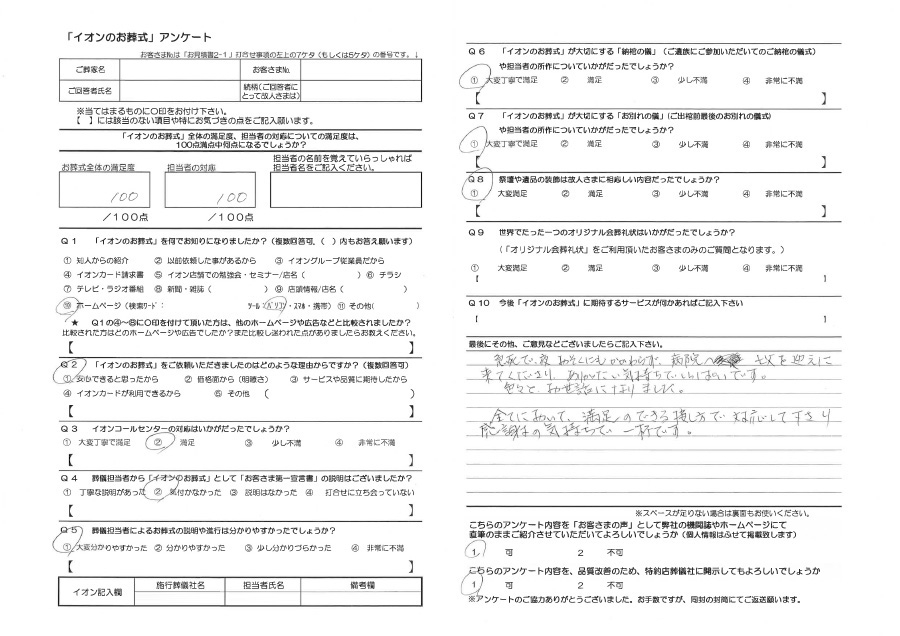 「イオンのお葬式」アンケート
お客さま№は「お見積書2-1」打合せ事項の左上の7ケタ（もしくは5ケタ）の番号です。↓
ご葬家名 お客さま№
ご回答者氏名 続柄（ご回答者にとって故人さまは）
※当てはまるものに〇印をお付け下さい。
【　】には該当のない項目や特にお気づきの点をご記入願います。
「イオンのお葬式」全体の満足度、担当者の対応についての満足度は、
100点満点中何点になるでしょうか？
お葬式全体の満足度 担当者の対応 担当者の名前を覚えていらっしゃれば
担当者名をご記入ください。
100 100
／100点 ／100点
Q1 「イオンのお葬式」を何でお知りになりましたか？（複数回答可、（　）内もお答え願います）
① 知人からの紹介 ② 以前依頼した事があるから ③ イオングループ従業員だから
④ イオンカード請求書 ⑤ イオン店舗での勉強会・セミナー/店名（　） ⑥ チラシ
⑦ テレビ・ラジオ番組 ⑧ 新聞・雑誌（　） ⑨ 店頭情報/店名（　）
⑩ ホームページ（検索ﾜｰﾄﾞ： ﾂｰﾙ：パソコン・ｽﾏﾎ・携帯） ⑪ その他（　）
★ Q1の④～⑧に〇印を付けて頂いた方は、他のホームページや広告などと比較されましたか？
比較された方はどのホームページや広告でしたか？また比較し迷われた点がありましたらお教えください。
【　】
Q2 「イオンのお葬式」をご依頼いただきましたのはどのような理由からですか？（複数回答可）
① 安心できると思ったから ② 価格面から（明瞭さ） ③ サービスや品質に期待したから
④ イオンカードが利用できるから ⑤ その他（　）
【　】
Q3 イオンコールセンターの対応はいかがだったでしょうか？
① 大変丁寧で満足 ② 満足 ③ 少し不満 ④ 非常に不満
【　】
Q4 葬儀担当者から「イオンのお葬式」として「お客さま第一宣言書」の説明はございましたか？
① 丁寧な説明があった ② 気付かなかった ③ 説明はなかった ④ 打合せに立ち会っていない
【　】
Q5 葬儀担当者によるお葬式の説明や進行は分かりやすかったでしょうか？
① 大変分かりやすかった ② 分かりやすかった ③ 少し分りづらかった ④ 非常に不満
【　】
イオン記入欄 施行葬儀社名 担当者氏名 備考欄
Q6 「イオンのお葬式」が大切にする「納棺の儀」（ご遺族にご参加いただいてのご納棺の儀式）
や担当者の所作についていかがだったでしょうか？
① 大変丁寧で満足 ② 満足 ③ 少し不満 ④ 非常に不満
【　】
Q7 「イオンのお葬式」が大切にする「お別れの儀」（ご出棺前最後のお別れの儀式）
や担当者の所作についていかがだったでしょうか？
① 大変丁寧で満足 ② 満足 ③ 少し不満 ④ 非常に不満
【　】
Q8 祭壇や遺品の装飾は故人さまに相応しい内容だったでしょうか？
① 大変満足 ② 満足 ③ 少し不満 ④ 非常に不満
【　】
Q9 世界でたった一つのオリジナル会葬礼状はいかがだったでしょうか？
（「オリジナル会葬礼状」をご利用頂いたお客さまのみのご質問となります。）
① 大変満足 ② 満足 ③ 少し不満 ④ 非常に不満
【　】
Q10 今後「イオンのお葬式」に期待するサービスが何かあればご記入下さい
【　】
最後にその他、ご意見などございましたらご記入下さい。
夜おそくにもかかわらず、病院へ 父を迎えに
来てくださり、ありがたい気持ちでいっぱいです。
色々と、お世話になりました。
全てにおいて、満足のできる接し方で対応して下さり
感謝の気持ちで一杯です。
※スペースが足りない場合は裏面もお使いください。
こちらのアンケート内容を「お客さまの声」として弊社の機関誌やホームページにて
直筆のままご紹介させていただいてよろしいでしょうか（個人情報はふせて掲載致します）
1 可 2 不可
こちらのアンケート内容を、品質改善のため、特約店葬儀社に開示してもよろしいでしょうか
1 可 2 不可
※アンケートのご協力ありがとうございました。お手数ですが、同封の封筒にてご返送願います。